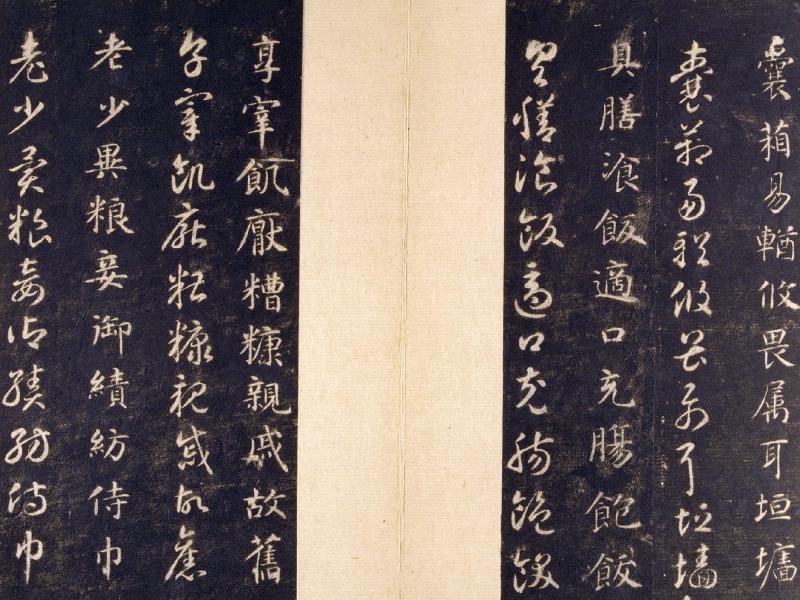 囊葙易輶攸畏属耳垣墻
囊葙易輶攸畏属耳垣墻
具膳湌飯適口充腸飽飫
具膳湌飯適口充腸飽飫
享宰飢厭糟糠親戚故舊
享宰飢厭糟糠親戚故舊
老少異粮妾御績紡侍巾
老少異粮妾御績紡侍巾